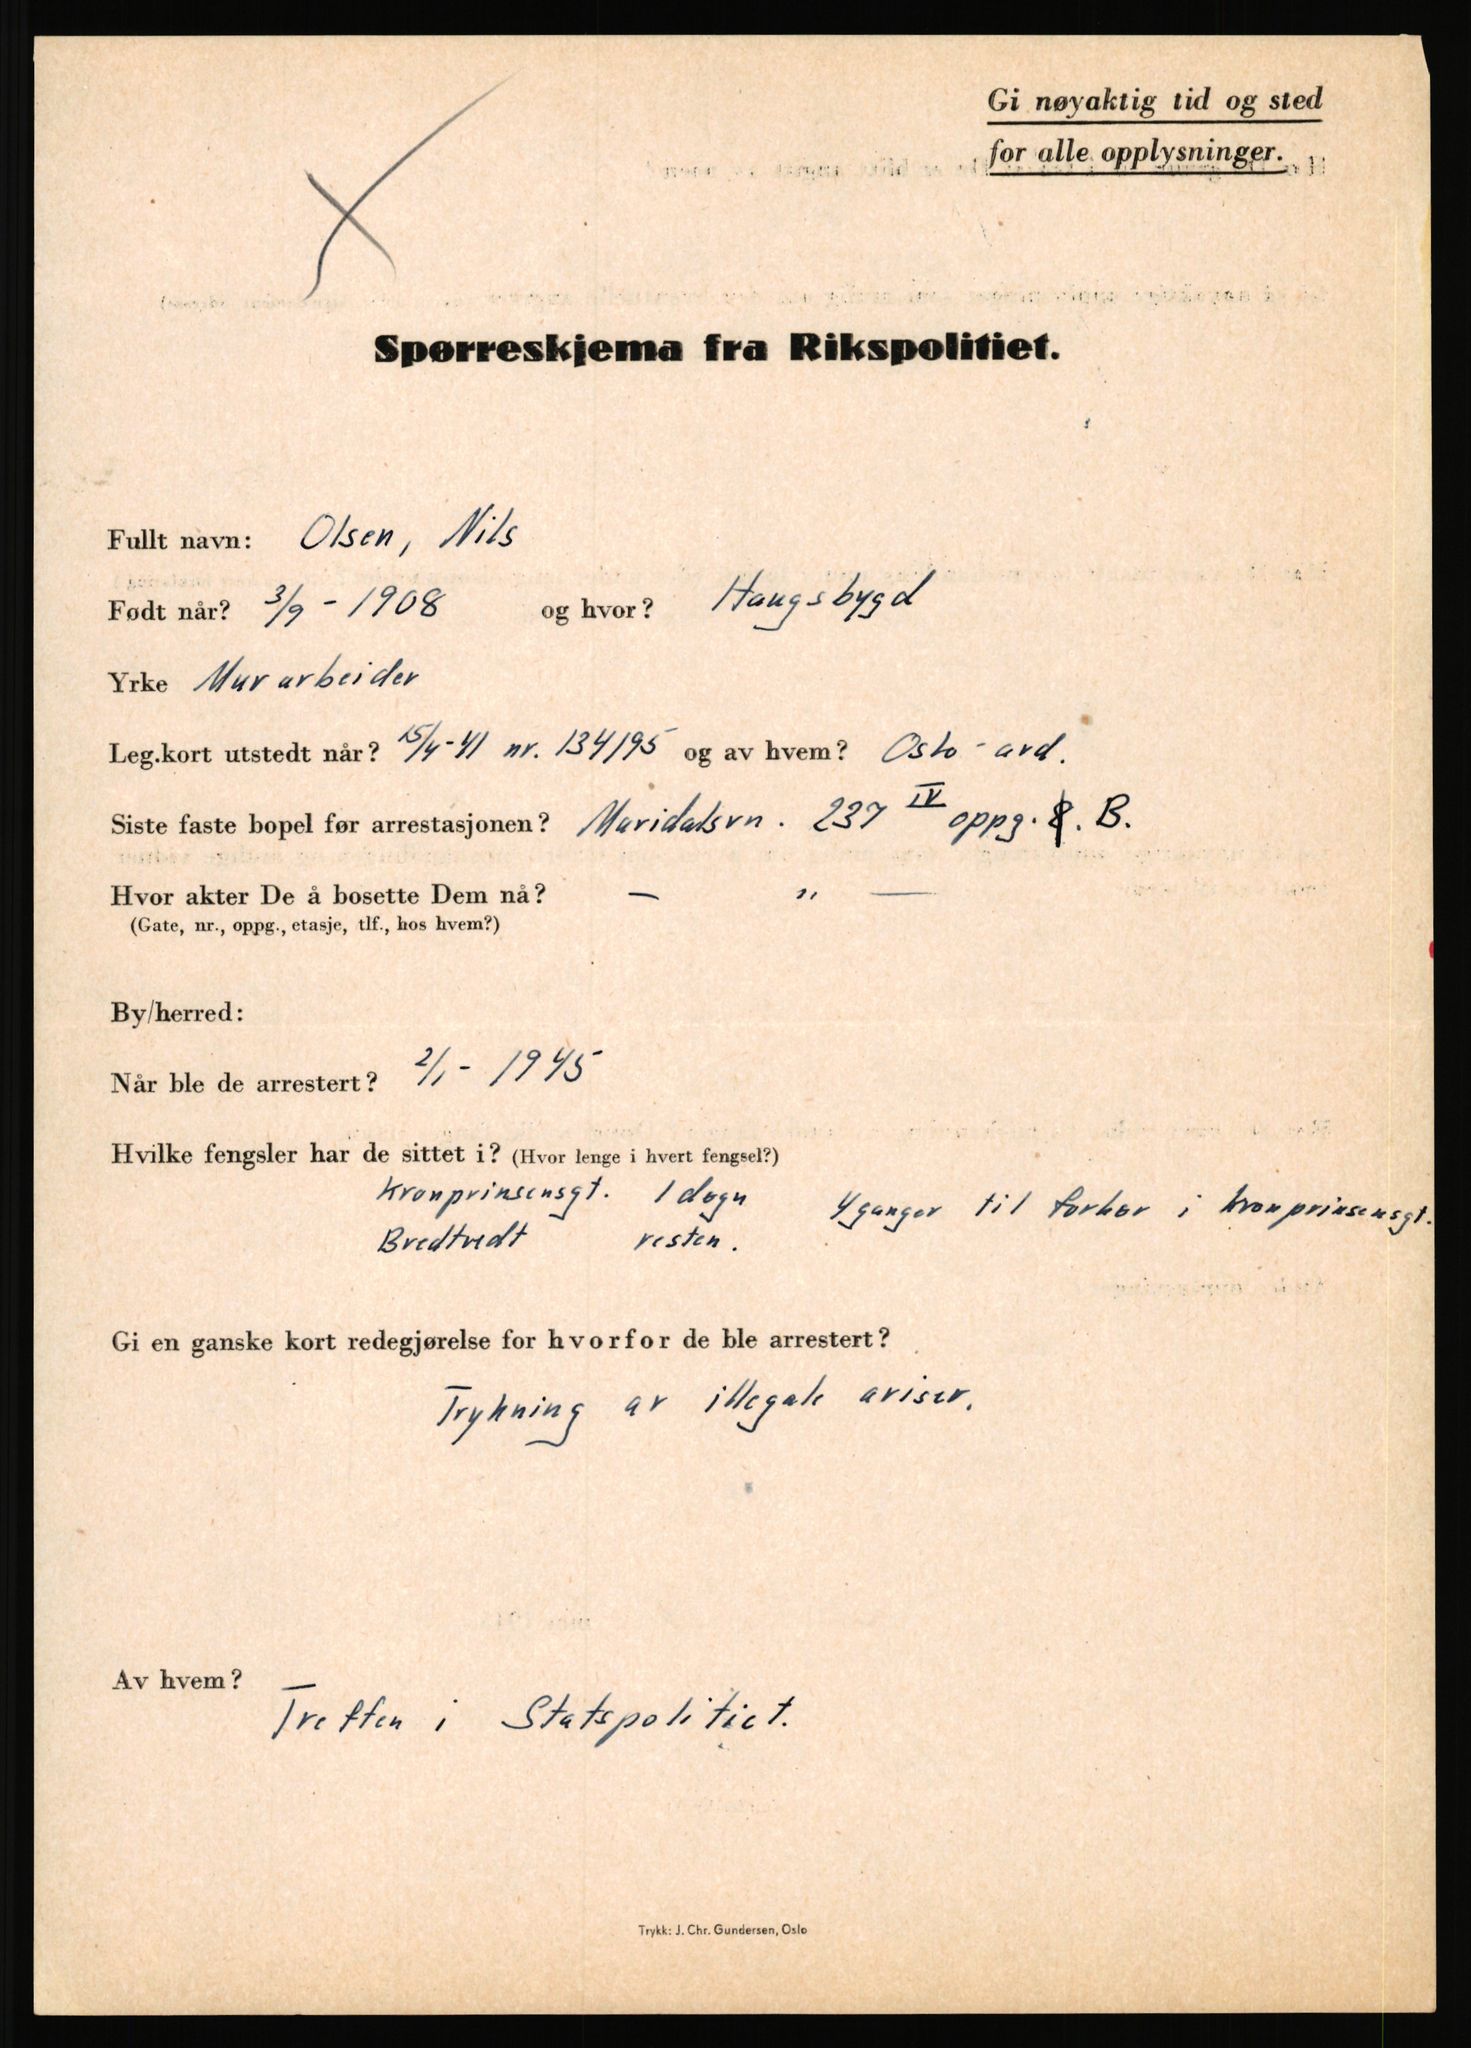 Gi nøyaktig tid og sted
for alle opplysninger.
Spørreskjema fra Rikspolitiet.
Fullt navn: Olsen, Nils
Født når? 3/9 - 1908 og hvor? Haugsbygd
Yrke Murarbeider
Leg.kort utstedt når? 15/4-41 nr. 134195 og av hvem? Oslo - avd.
Siste faste bopel før arrestasjonen? Maridalsvn. 237 IV oppg. B.
Hvor akter De å bosette Dem nå? — " —
(Gate, nr., oppg., etasje, tlf., hos hvem?)
By/herred:
Når ble de arrestert? 2/1 - 1945
Hvilke fengsler har de sittet i? (Hvor lenge i hvert fengsel?)
Kronprinsensgt. 1 døgn 4 ganger til forhør i Kronprinsensgt.
Bredtvedt resten.
Gi en ganske kort redegjørelse for hvorfor de ble arrestert?
Trykning av illegale aviser.
Av hvem?
Treffen i Statspolitiet.
Trykk: J. Chr. Gundersen, Oslo